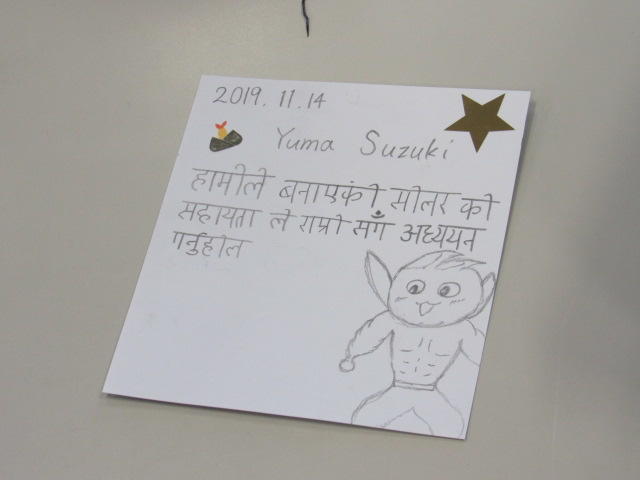 2019.11.14
Yuma Suzuki
हामीले बनाएकी सोलर को
सहायता ले राम्रो सँग अध्ययन
गर्नुहोल